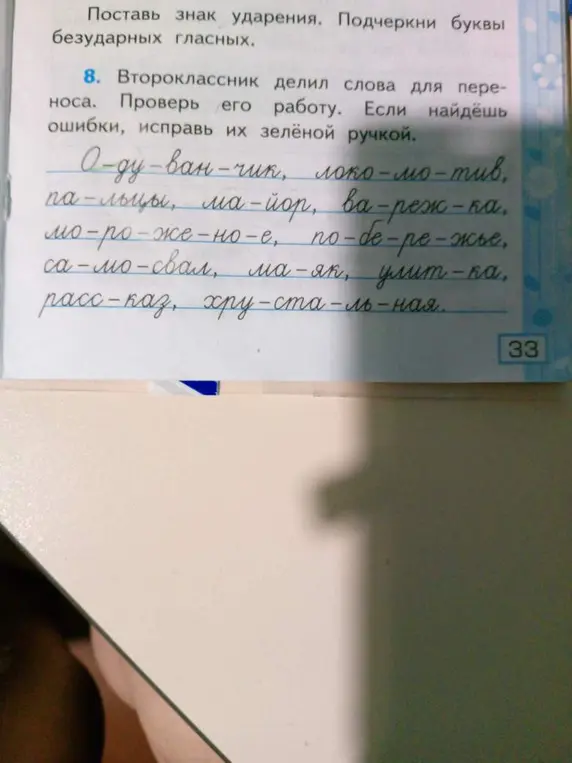 Поставь знак ударения. Подчеркни буквы
безударных гласных.
8. Второклассник делил слова для пере-
носа. Проверь его работу. Если найдёшь
ошибки, исправь их зелёной ручкой.
О-ду-ван-чик, локо-мо-тив,
па-льцы, ма-йор, ва-реж-ка,
мо-ро-же-но-е, по-бе-ре-жье,
са-мо-свал, ма-як, улит-ка,
расс-каз, хру-ста-ль-ная.
33